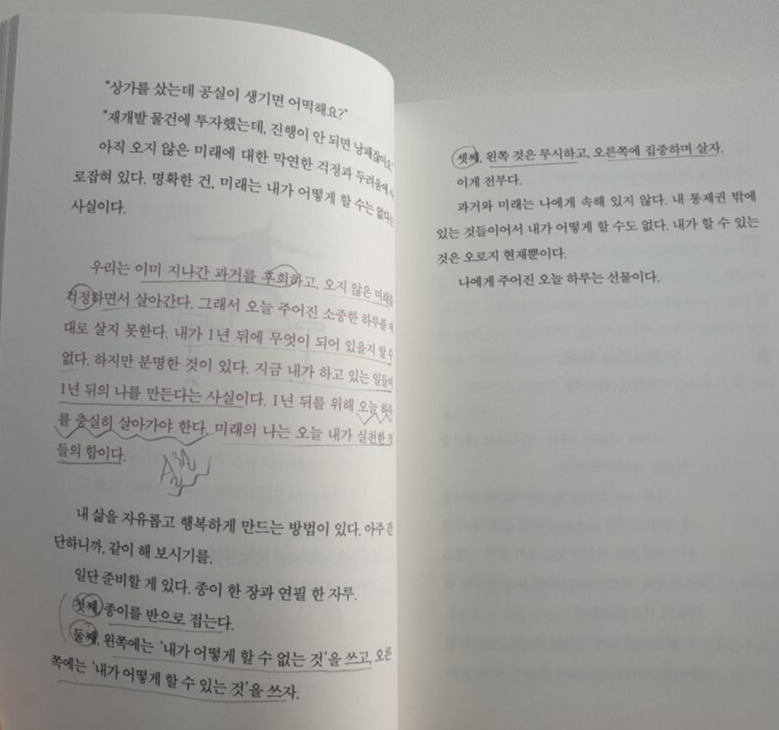 “상가를 샀는데 공실이 생기면 어떡해요?”
“재개발 물건에 투자했는데, 진행이 안 되면 낭패잖아요”
아직 오지 않은 미래에 대한 막연한 걱정과 두려움에
로잡혀 있다. 명확한 건, 미래는 내가 어떻게 할 수는 없다는
사실이다.
우리는 이미 지나간 과거를 후회하고, 오지 않은 미래를
걱정하면서 살아간다. 그래서 오늘 주어진 소중한 하루를 제
대로 살지 못한다. 내가 1년 뒤에 무엇이 되어 있을지 알 수
없다. 하지만 분명한 것이 있다. 지금 내가 하고 있는 일들이
1년 뒤의 나를 만든다는 사실이다. 1년 뒤를 위해 오늘 하루
를 충실히 살아가야 한다. 미래의 나는 오늘 내가 실천한 것
들의 합이다.
내 삶을 자유롭고 행복하게 만드는 방법이 있다. 아주 간
단하니까, 같이 해 보시기를.
일단 준비할 게 있다. 종이 한 장과 연필 한 자루.
첫째, 종이를 반으로 접는다.
둘째, 왼쪽에는 ‘내가 어떻게 할 수 없는 것’을 쓰고, 오른
쪽에는 ‘내가 어떻게 할 수 있는 것’을 쓰자.
셋째, 왼쪽 것은 무시하고, 오른쪽에 집중하며 살자.
이게 전부다.
과거와 미래는 나에게 속해 있지 않다. 내 통제권 밖에
있는 것들이어서 내가 어떻게 할 수도 없다. 내가 할 수 있는
것은 오로지 현재뿐이다.
나에게 주어진 오늘 하루는 선물이다.